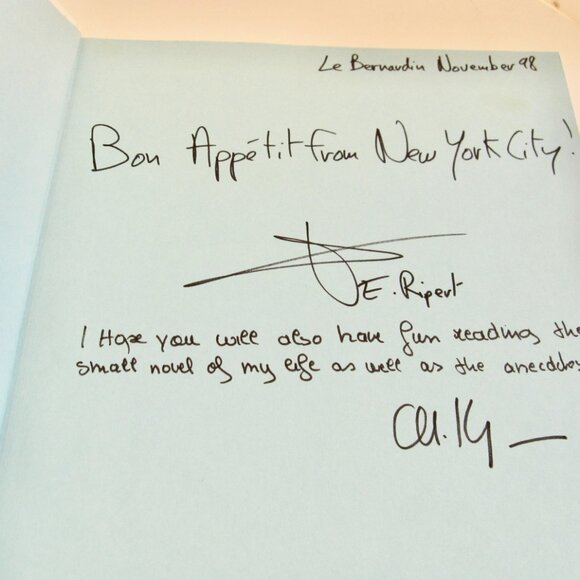 Le Bernardin November 98
Bon Appétit from New York City!
E. Ripert
I Hope you will also have fun reading the
small novel of my life as well as the anecdotes